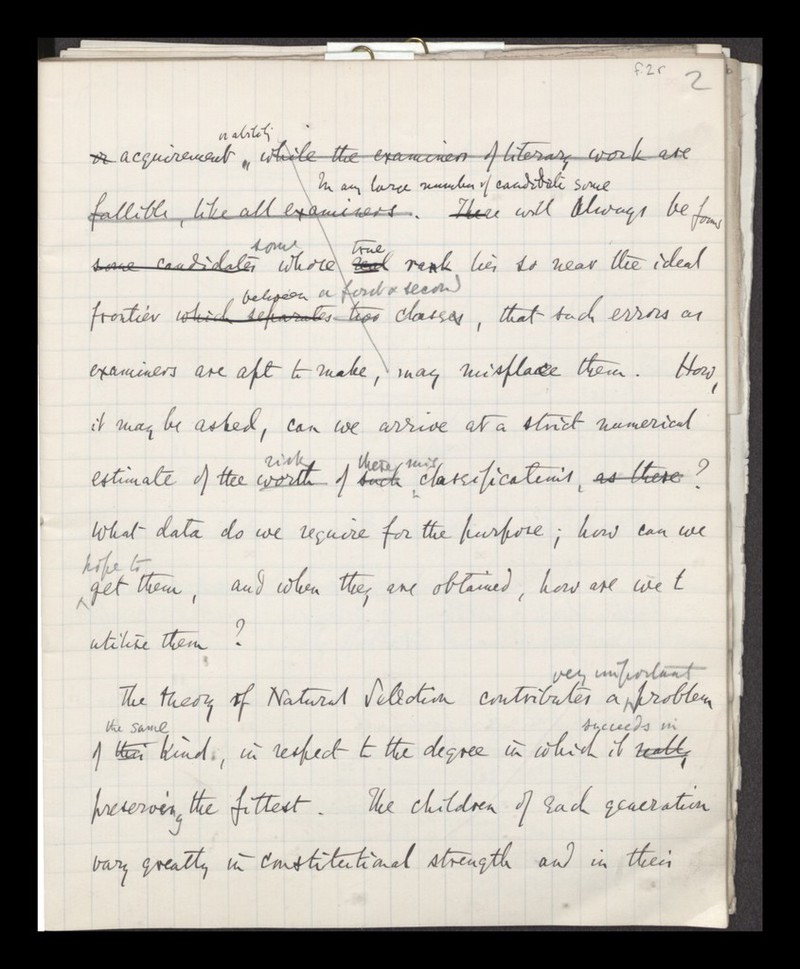 f.2r 2
or ability
or acquirement, while the examiners of literary work are
In any large number of candidates some
fallible, like all examiners. There will always be found
some true
some candidates whose real rank lies so near the ideal
between a first & second
frontier which separates two classes, that such errors as
examiners are apt to make, may misplace them. How,
it may be asked, can we arrive at a strict numerical
risk these mis
estimate of the worth of such classifications, as these?
What data do we require for the purpose; how can we
hope to
get them, and when they are obtained, how are we t
utilise them?
very important
The theory of Natural Selection contributes a problem
the same succeeds in
of this kind, in respect to the degree in which it really
preserving the fittest. The children of each generation
vary greatly in constitutional strength and in their